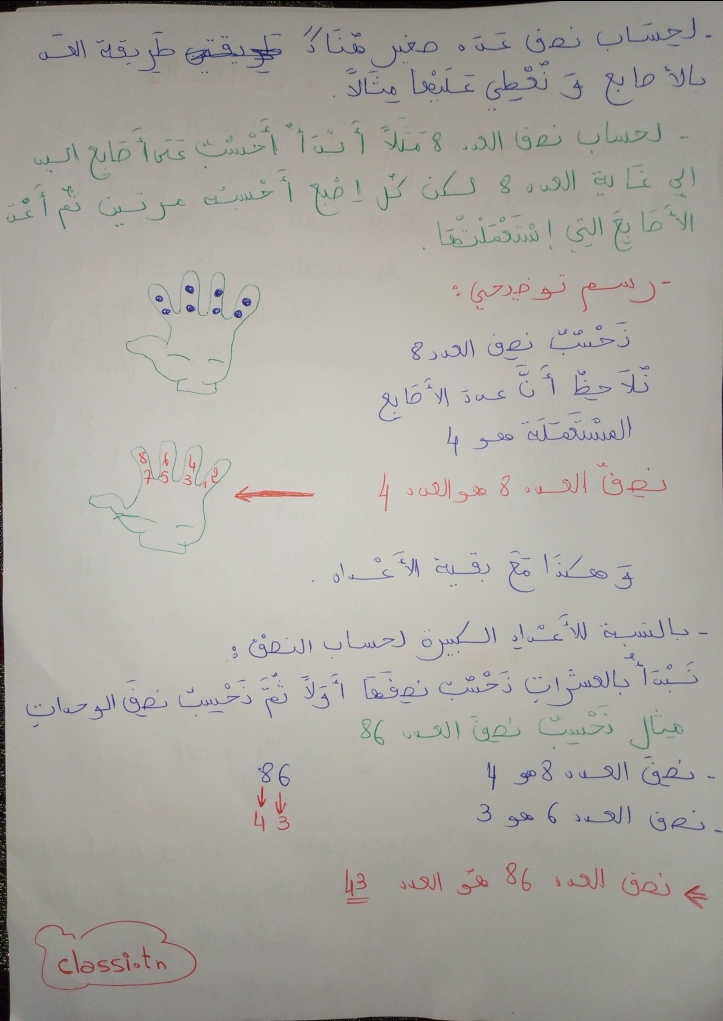 - لحِسَاب نصف عَدَد صغير هُنَاكَ طريقتي طَريقة العد
بالأصابع وَ نُعْطِي عَلَيْهَا مِثَالاً.
- لحساب نصف العدد 8 مَثَلاً أَبْدَأُ أَحْسُبُ عَلَى أَصَابِع اليد
إلى غَاية العدد 8 لكن كُلّ إصْبع أَحْسبُه مرتين ثُمَّ أَعُدّ
الأَصَابِعَ التِي اسْتَعْمَلْتُهَا.
- رسم توضيحي:
نَحْسُبُ نصف العدد 8
نُلاَحِظُ أَنَّ عدد الأَصَابِع
المُسْتَعْمَلَة هو 4
8 6 4 2
7 5 3 1
نصفُ العدد 8 هو العدد 4
وَ هكذَا مَعَ بقية الأَعْداد.
- بالنسبة للأَعْدَادِ الكبيرة لحساب النصْف:
نَبْدَأُ بالعشَرَاتِ نَحْسُبُ نصفَهَا أَوَّلاً ثُمَّ نَحْسِبُ نصفَ الوحداتِ
مثال نَحْسِبُ نصفَ العدد 86
- نصفَ العدد 8 هو 4 86
- نصف العدد 6 هو 3 4 3
⇐ نصف العدد 86 هُو العدد 43
classi.tn